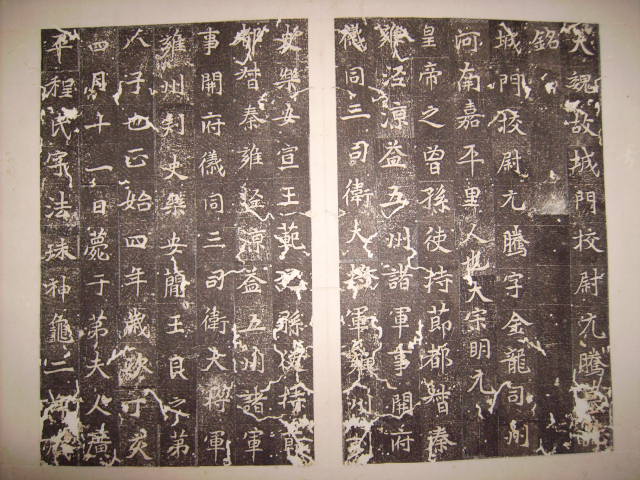 大魏故城門校尉元騰墓誌
銘
城門校尉元騰字金龍司州
河南嘉平里人也大宗明元
皇帝之曾孫使持節都督秦
雍涇涼益五州諸軍事開府
儀同三司衛大將軍雍州刺
史樂安宣王範之孫使持節
都督秦雍涇涼益五州諸軍
事開府儀同三司衛大將軍
雍州刺史樂安簡王良之第
八子也正始四年歲次丁亥
四月十一日薨于第夫人廣
平程氏字法珠神龜二年